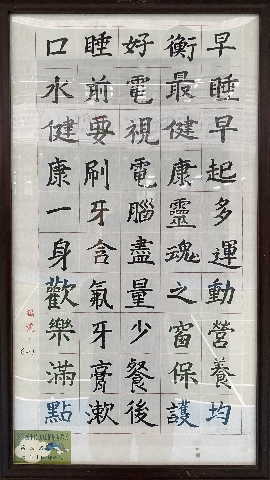 早睡早起多運動營養均
衡最健康靈魂之窗保護
好電視電腦盡量少餐後
睡前要刷牙含氣牙膏漱
口水健康一身歡樂滿點